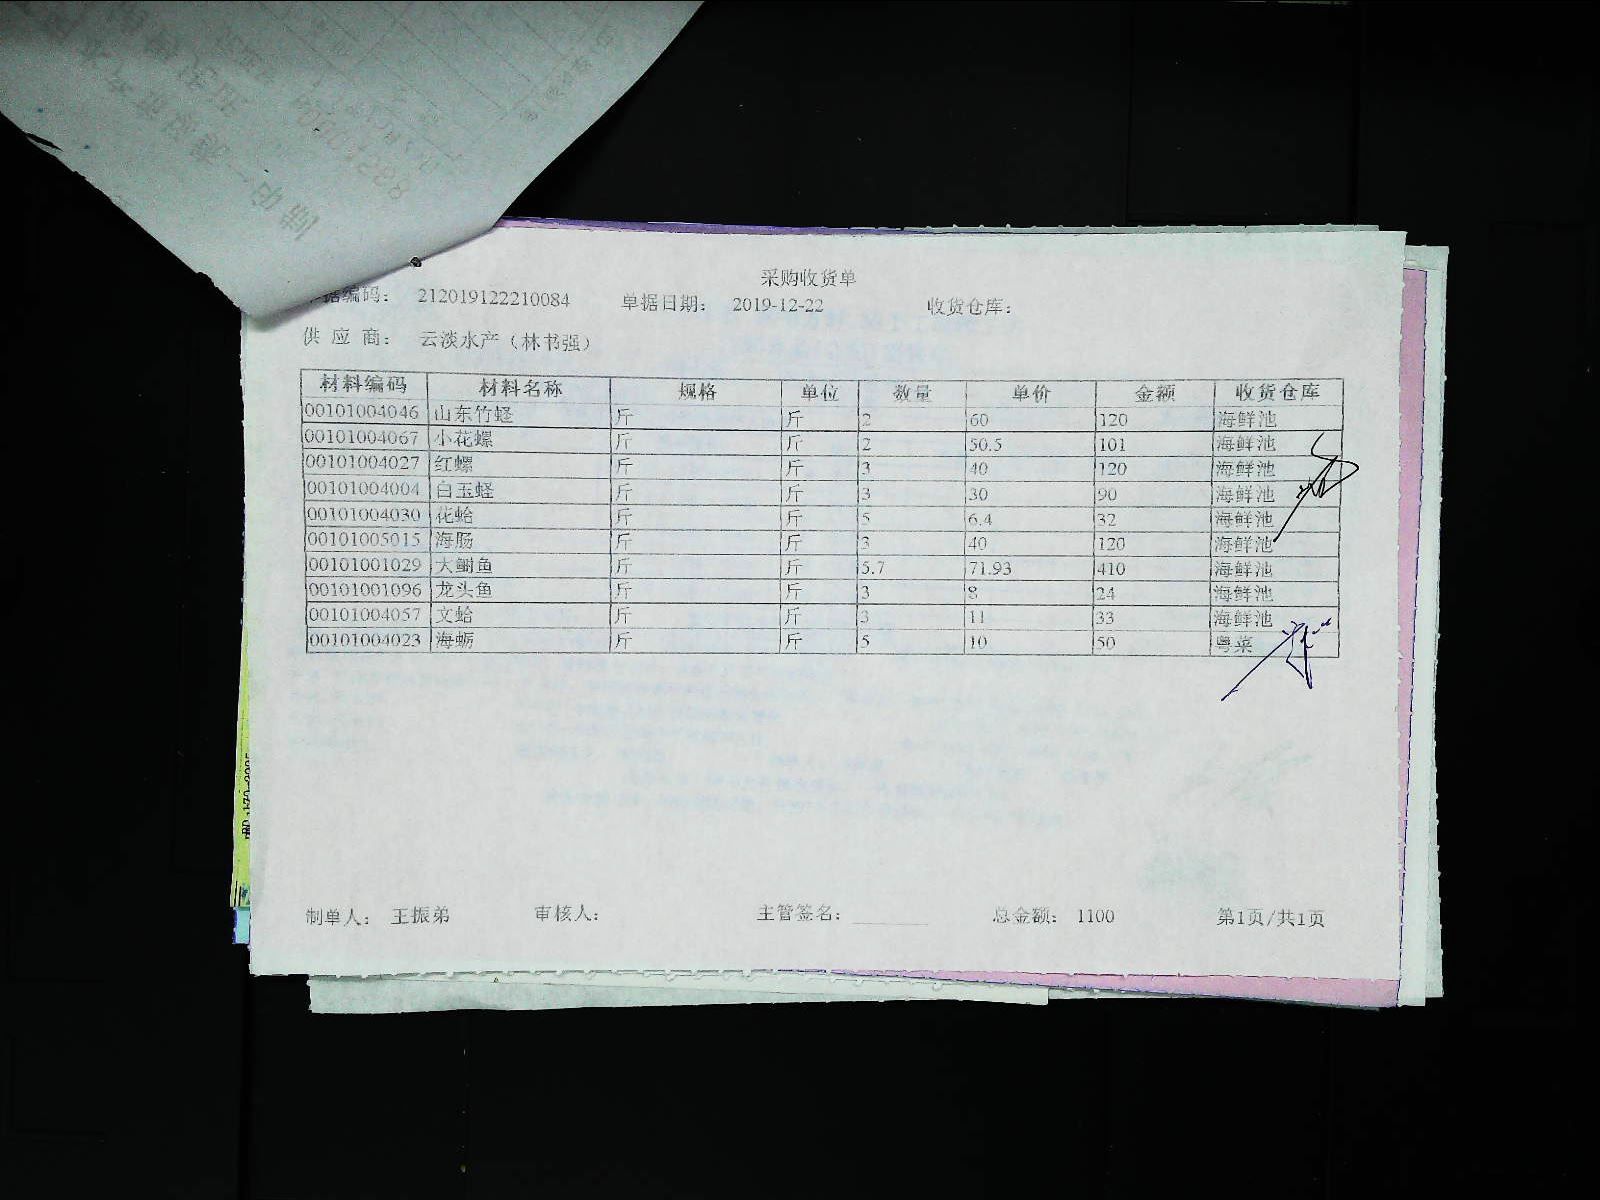 采购收货单
据编码： 212019122210084 单据日期： 2019-12-22 收货仓库：
供 应 商： 云淡水产（林书强）
材料编码 材料名称 规格 单位 数量 单价 金额 收货仓库
00101004046 山东竹蛏 斤 斤 2 60 120 海鲜池
00101004067 小花螺 斤 斤 2 50.5 101 海鲜池
00101004027 红螺 斤 斤 3 40 120 海鲜池
00101004004 白玉蛏 斤 斤 3 30 90 海鲜池
00101004030 花蛤 斤 斤 5 6.4 32 海鲜池
00101005015 海肠 斤 斤 3 40 120 海鲜池
00101001029 大鲗鱼 斤 斤 5.7 71.93 410 海鲜池
00101001096 龙头鱼 斤 斤 3 8 24 海鲜池
00101004057 文蛤 斤 斤 3 11 33 海鲜池
00101004023 海蛎 斤 斤 5 10 50 粤菜
制单人： 王振弟 审核人： 主管签名： 总金额： 1100 第1页/共1页